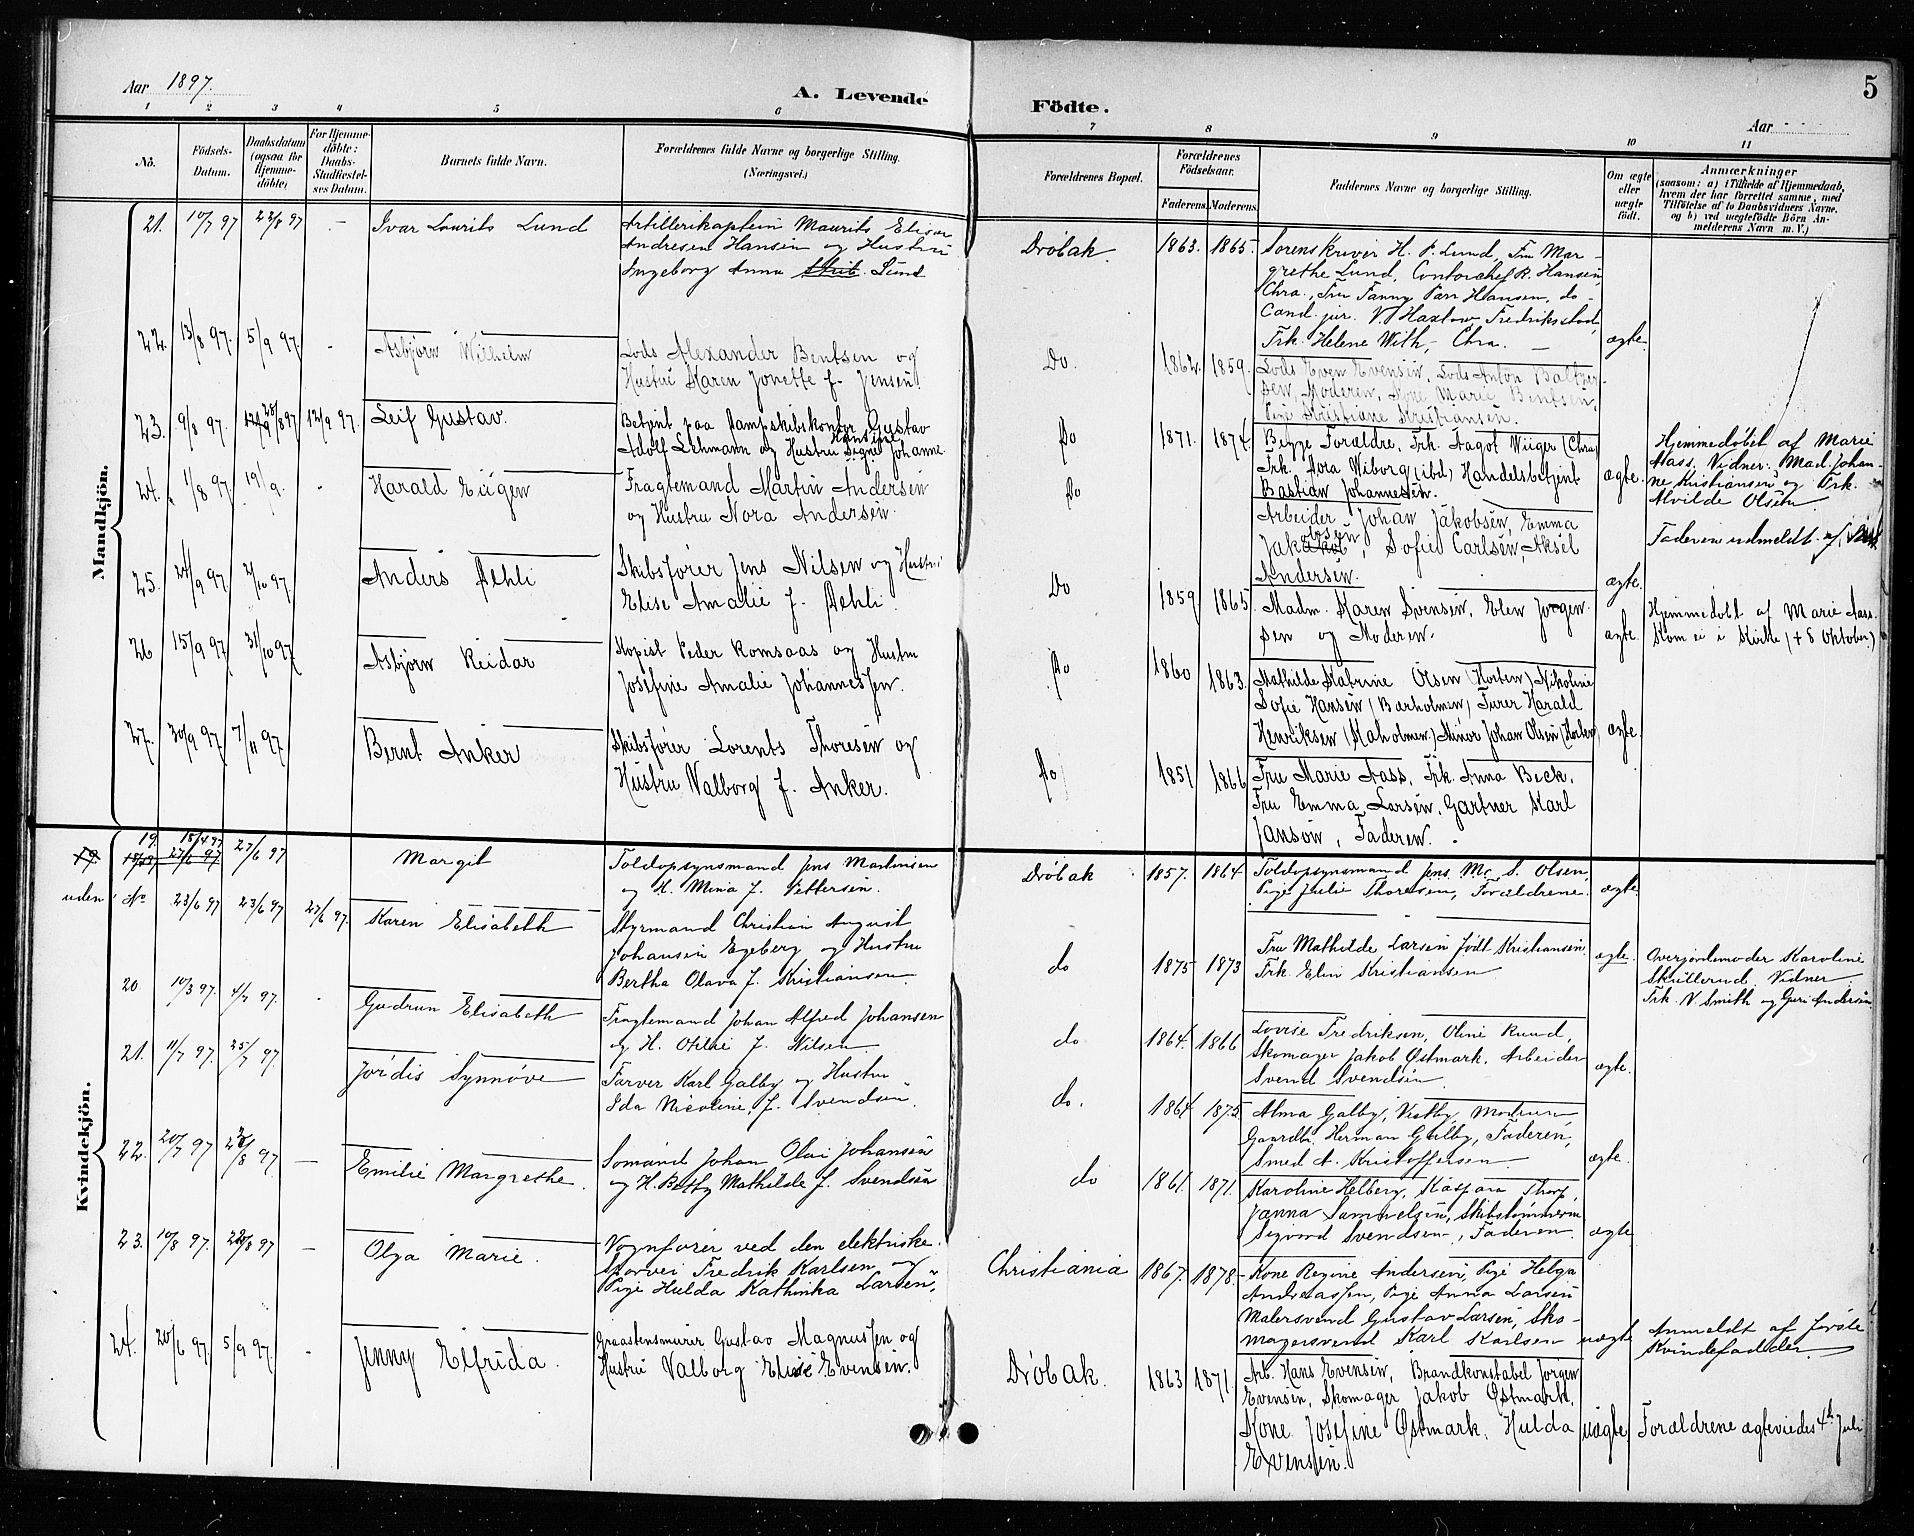 Aar 1897.
A. Levende
Födte.
5
Aar
1 2 3 4 5 6
7 8 9 10 11
No.
Födsels-
Datum.
Daabsdatum
(ogsaa for
Hjemme-
döbte)
For Hjemme-
döbte:
Daabs-
Stadfæstel-
ses Datum.
Barnets fulde Navn.
Forældrenes fulde Navne og borgerlige Stilling.
(Næringsvei.)
Forældrenes Bopæl.
Forældrenes
Födselsaar.
Faderens. Moderens.
Faddernes Navne og borgerlige Stilling.
Om ægte
eller
uægte
født.
Anmærkninger
(saasom: a) i Tilfælde af Hjemmedaab,
hvem der har forrettet samme, med
Tilföielse af to Daabsvidners Navne,
og b) ved uegtefödte Börn An-
melderens Navn m. V.)
Mandkjön.
21. 10/7 97 22/8 97 - Ivar Laurits Lund
Artillerikaptein Maurits Elisar
Andresen Hansen og Hustru
Ingeborg Anna Lund
Dröbak 1863. 1865.
Sorenskriver H. P. Lund, Fru Mar-
grethe Lund, Contorchef R. Hansen
Chra., Fru Fanny Parr Hansen, do -
Cand. jur. V. Haxlow Fredriksstad,
Frk. Helene With, Chra. -
ægte.
22. 13/8 97. 5/9 97. - Asbjørn Wilhelm
Lods Alexander Bentsen og
Hustru Karen Jonette f. Jensen.
Do. 1862. 1859.
Lods Even Evensen, Lods Anton Baltzer-
sen, Moderen, Kone Marie Bentsen,
Pige Kristiane Kristiansen.
23. 9/8 97. 28/8 97 12/9 97. Leif Gustav.
Betjent paa Dampskibskontor Gustav
Adolf Lehmann og Hustru Signe Johanne
Hansine
Do 1871. 1874.
Begge Forældre, Frk. Dagot Wüger (Chra)
Frk. Dora Wiborg (ibd) Handelsbetjent
Bastian Johannesen.
ægte.
Hjemmedøbt af Marie
Aass, Vidner: Mad. Johan-
ne Kristiansen og Frk.
Alvilde Olsen.
24. 1/8 97 19/9. - Harald Eugen
Fragtemand Martin Andersen
og Hustru Nora Andersen.
Do
Arbeider Johan Jakobsen, Emma
Jakobsen, Sofie Carlsen, Aksel
Andersen.
ægte.
Faderen udmeldt af
25. 24/9 97 2/10 97 Anders Dehli
Skibsfører Jens Nilsen og Hustru
Elise Amalie f. Dehli.
Do 1859 1865.
Madm. Karen Svensen, Elen Jørgen-
sen og Moderen.
ægte.
Hjemmedøbt af Marie Aass.
Kom ei i Kirke (+ 8 Oktober)
26 15/9 97 31/10 97 Asbjørn Reidar
Kopist Peder Romsaas og Hustru
Josefine Amalie Johannessen.
Do 1860 1863.
Mathilde Katrine Olsen (Horten) Nikoline
Sofie Hansen (Barholmen) Fører Harald
Henriksen (Kaholmen) Minør Johan Olsen (Horten)
ægte.
27. 30/9 97 7/11 97. Bernt Anker
Skibsfører Lorents Thoresen og
Hustru Valborg f. Anker.
Do 1851 1866
Fru Marie Aass, Frk. Anna Beck,
Fru Emma Larsen, Gartner Karl
Janson, Faderen.
Kvindekjön.
19. 15/4 97 27/6 97 Margit
Toldopsynsmand Jens Martinsen
og H. Mina f. Pettersen.
Dröbak 1857. 1864
Toldopsynsmand Jens Mc. S. Olsen,
Pige Julie Thoresen, Forældrene.
ægte
uden No 23/6 97 23/6 97 27/6 97. Karen Elisabeth
Styrmand Christian August
Johansen Egeberg og Hustru
Bertha Olava f. Kristiansen.
do 1875 1873
Fru Mathilde Larsen født Kristiansen
Frk. Elin Kristiansen
ægte.
Overjordemoder Karoline
Skullerud. Vidner
Frk. N. Smith og Guri Andersen
20. 10/3 97. 4/7 97. - Gudrun Elisabeth
Fragtemand Johan Alfred Johansen
og H. Otilie f. Nilsen.
do 1864. 1866
Lovise Fredriksen, Oline Rund,
Skomager Jakob Østmark, Arbeider
Svend Svendsen.
ægte.
21. 11/7 97. 25/7 97. Jördis Synnøve
Farver Karl Galby og Hustru
Ida Nicoline, f. Svendsen.
do. 1864 1875
Alma Galby, Vestby, Moderen
Gaardbr. Herman Galby, Faderen,
Smed A. Kristoffersen
ægte.
22. 20/7 97 /8 97 - Emilie Margrethe.
Sømand Johan Olai Johansen
og H. Betty Mathilde f. Svendsen
do 1861. 1871.
Karoline Helberg, Kaspara Thorp,
Janna Samuelsen, Skibstømmerm
Sigvard Svendsen, Faderen.
ægte.
23. 10/8 97. /8 97 - Olga Marie.
Vognfører ved den elektriske
Sporvei Fredrik Karlsen og
Pige Hulda Kathinka Larsen.
Christiania 1867. 1878.
Kone Regine Andersen, Pige Helga
Andreassen, Pige Anna Larsen
Malersvend Gustav Larsen, Sko-
magersvend Karl Karlsen
uægte
Anmeldt af første
Kvindefadder.
24. 20/6 97. 5/9 97. - Jenny Elfrida.
Graastensmurer Gustav Magnussen og
Hustru Valborg Elise Evensen.
Dröbak. 1863 1871.
Arb. Hans Evensen, Brandkonstabel Jørgen
Evensen, Skomager Jakob Østmark,
Kone Josefine Østmark, Hulda
Evensen.
uægte
Forældrene ægteviedes 4de Juli